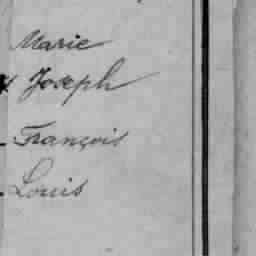 Marie
Joseph
François
Louis